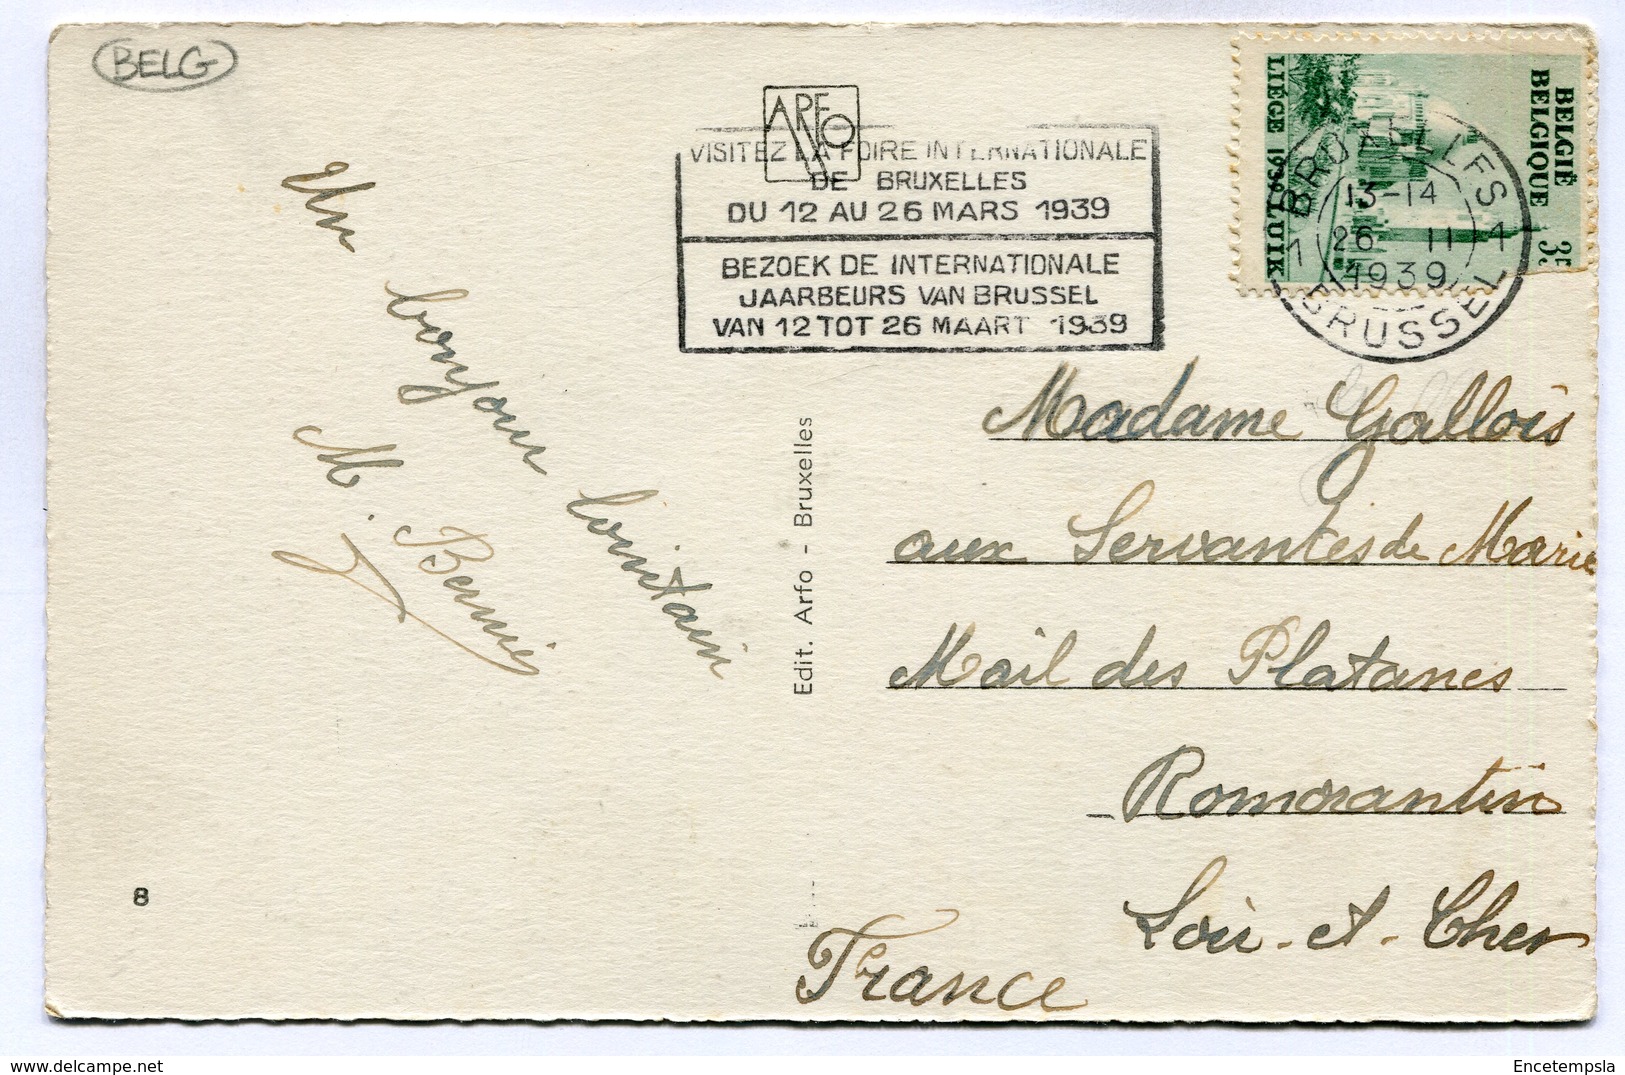 BELG
ARFO
VISITEZ LA FOIRE INTERNATIONALE
DE BRUXELLES
DU 12 AU 26 MARS 1939
BEZOEK DE INTERNATIONALE
JAARBEURS VAN BRUSSEL
VAN 12 TOT 26 MAART 1939
BELGIË
BELGIQUE
35
LIÈGE 1939 LUIK
BRUXELLES
1 1
13-14
26 II
1939
BRUSSEL
Un bonjour lointain
M. Bernier
Edit. Arfo - Bruxelles
Madame Gallois
aux Servantes de Marie
Mail des Platanes
Romorantin
Loir-et-Cher
France
8
Encetempsla